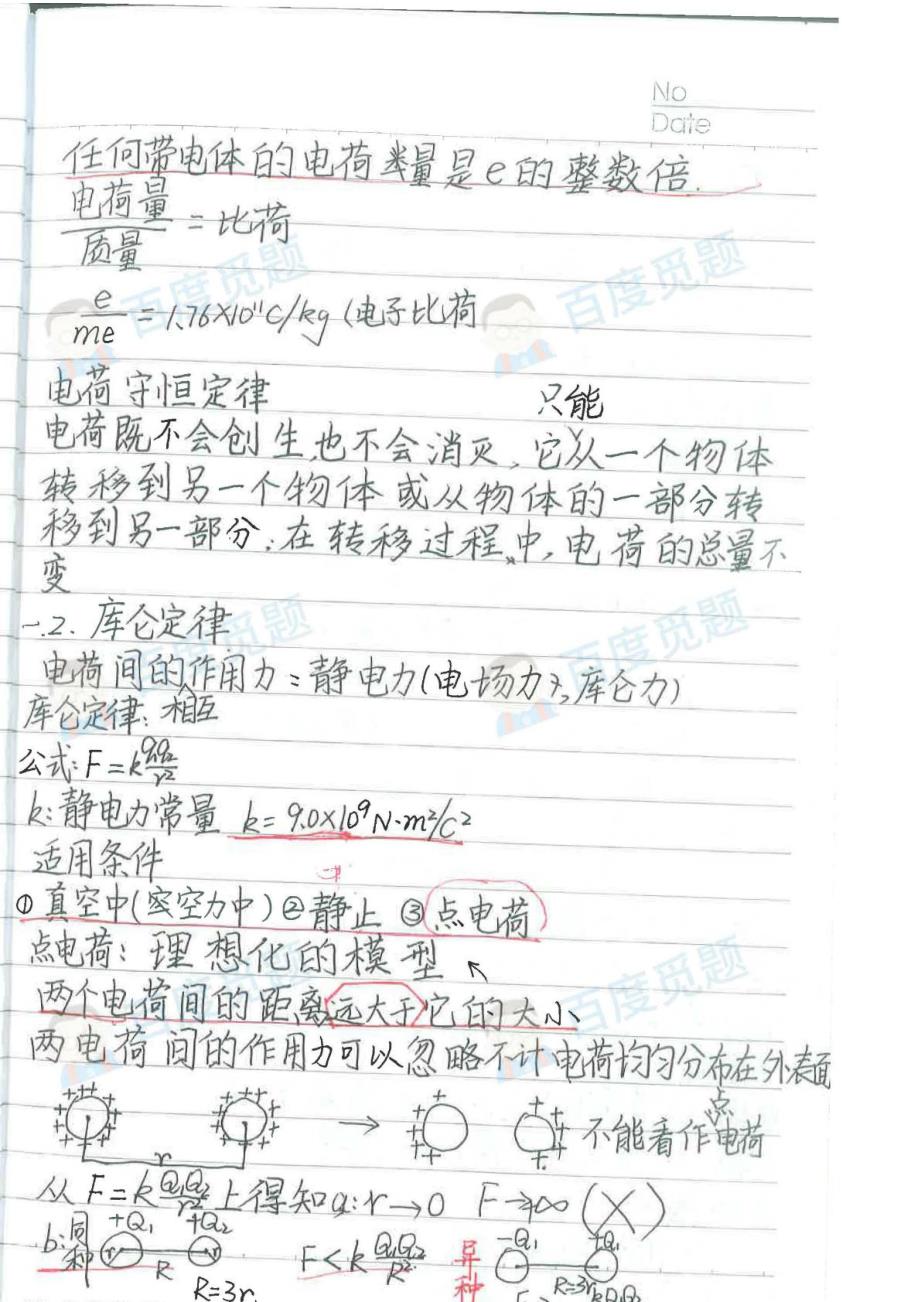 No
Date
任何带电体的电荷量是e的整数倍.
电荷量
质量
= 比荷
e
me
= 1.76×10¹¹C/kg (电子比荷
电荷守恒定律
只能
电荷既不会创生也不会消灭,它从一个物体
转移到另一个物体或从物体的一部分转
移到另一部分;在转移过程中,电荷的总量不
变
一.2.库仑定律
电荷间的作用力:静电力(电场力,库仑力)
相互
库仑定律:
公式:F=k q₁q₂/r²
k:静电力常量 k=9.0×10⁹N·m²/C²
适用条件
①真空中( 空力中)②静止 ③点电荷
点电荷:理想化的模型
两个电荷间的距离远大于它的大小
两电荷间的作用力可以忽略不计电荷均匀分布在外表面
r
→
点
不能看作电荷
从F=k Q₁Q₂/r² 上得知a:r→0 F→∞ (X)
b:同种 +Q₁ +Q₂ r r R
F<k Q₁Q₂/R²
异种 -Q₁ +Q₁
R=3r
R=3r.
百度觅题
百度觅题
百度觅题
百度觅题
百度觅题
百度觅题